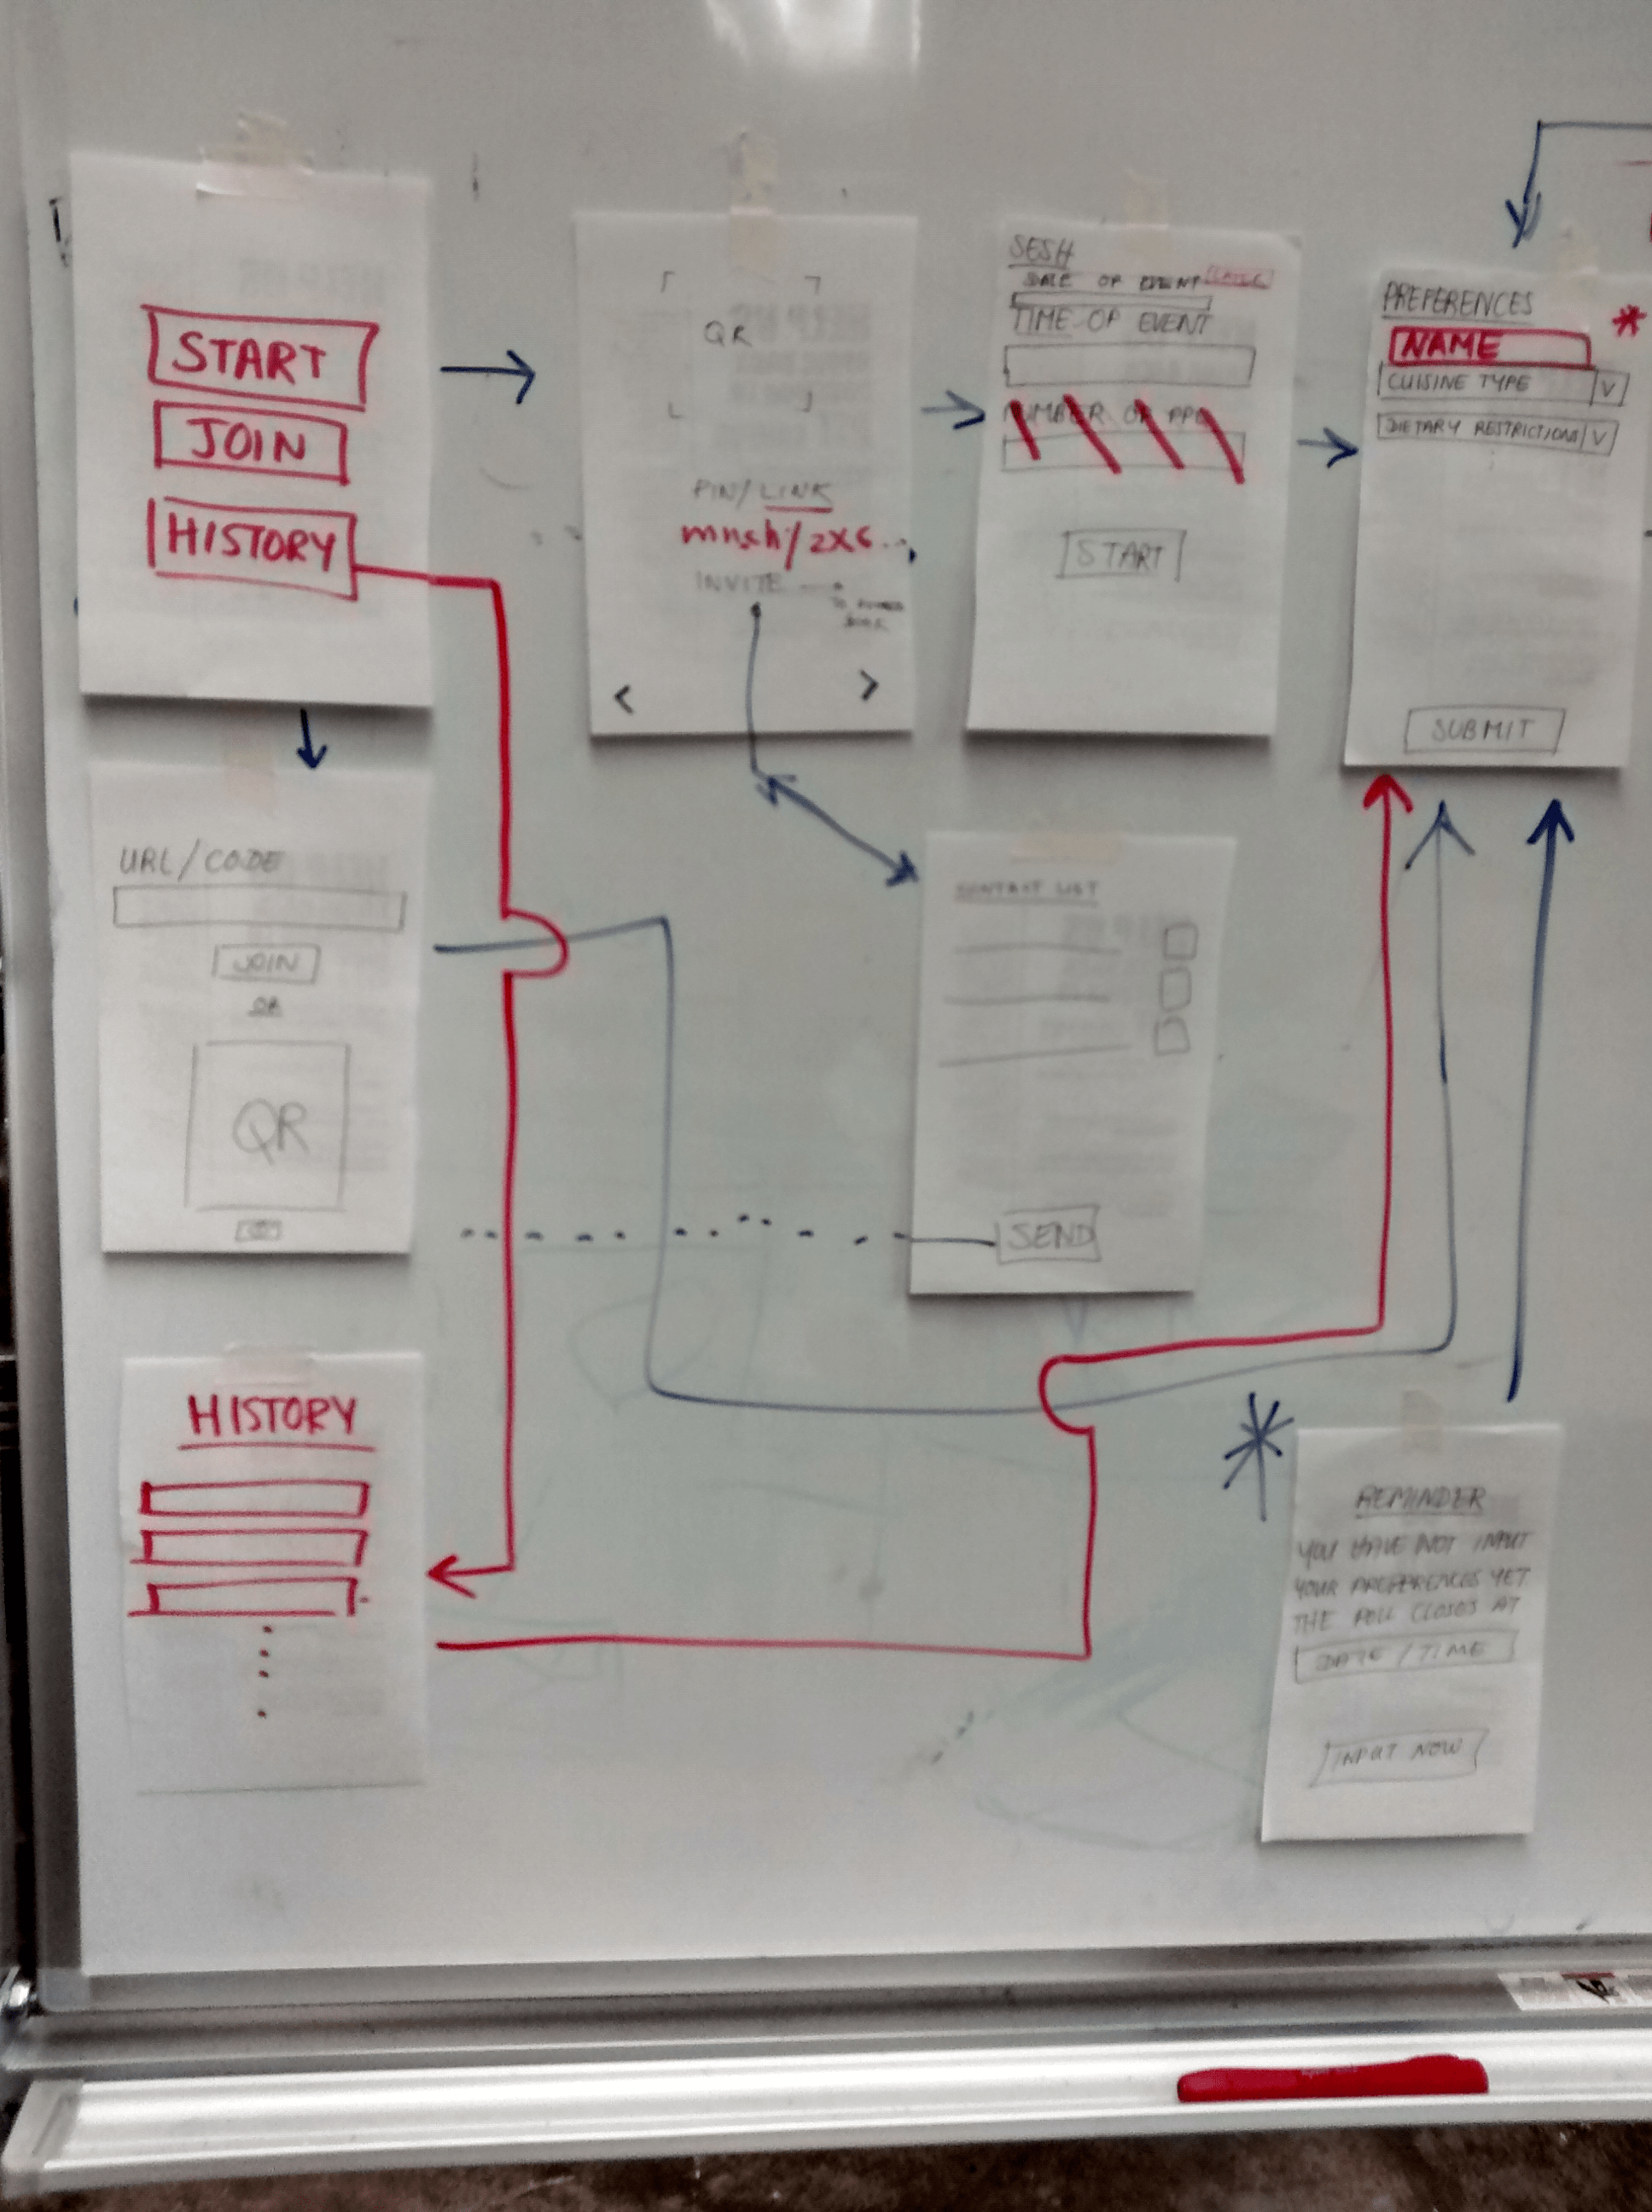 START
JOIN
HISTORY
QR
PIN/LINK
mnch/2X6...
INVITE
TO
SESH
DATE OF EVENT
TIME OF EVENT
NUMBER OF PPL
START
PREFERENCES
*
NAME
CUISINE TYPE V
DIETARY RESTRICTIONS V
SUBMIT
URL/CODE
JOIN
OR
QR
CONTACT LIST
SEND
HISTORY
*
REMINDER
YOU HAVE NOT INPUT
YOUR PREFERENCES YET
THE POLL CLOSES AT
DATE / TIME
INPUT NOW